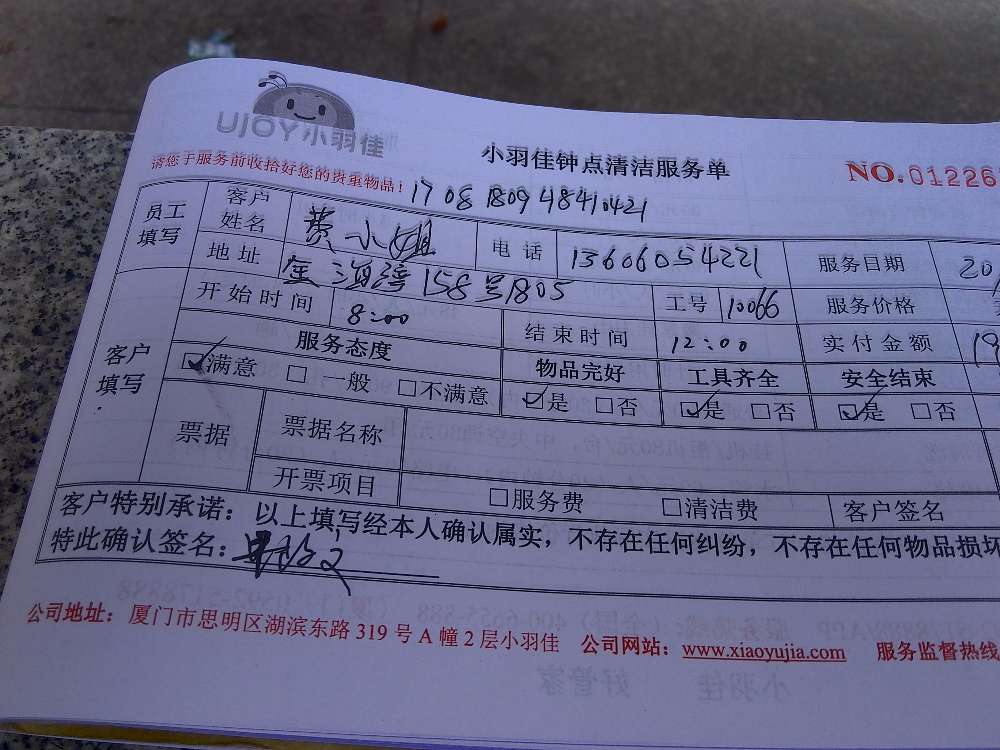 UJOY小羽佳
小羽佳钟点清洁服务单
NO.01226
请您于服务前收拾好您的贵重物品！
17 08 1809 48410421
员工填写 客户姓名 费小姐 电话 13606054221 服务日期 20
地址 金海湾158号1805 工号 10066 服务价格
客户填写 开始时间 8:00 结束时间 12:00 实付金额 19
服务态度 物品完好 工具齐全 安全结束
☑满意 □一般 □不满意 ☑是 □否 ☑是 □否 ☑是 □否
票据 票据名称
开票项目 □服务费 □清洁费 客户签名
客户特别承诺：以上填写经本人确认属实，不存在任何纠纷，不存在任何物品损坏
特此确认签名：
公司地址：厦门市思明区湖滨东路319号A幢2层小羽佳 公司网站：www.xiaoyujia.com 服务监督热线